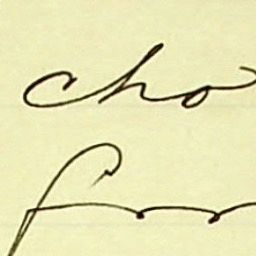 cho
for